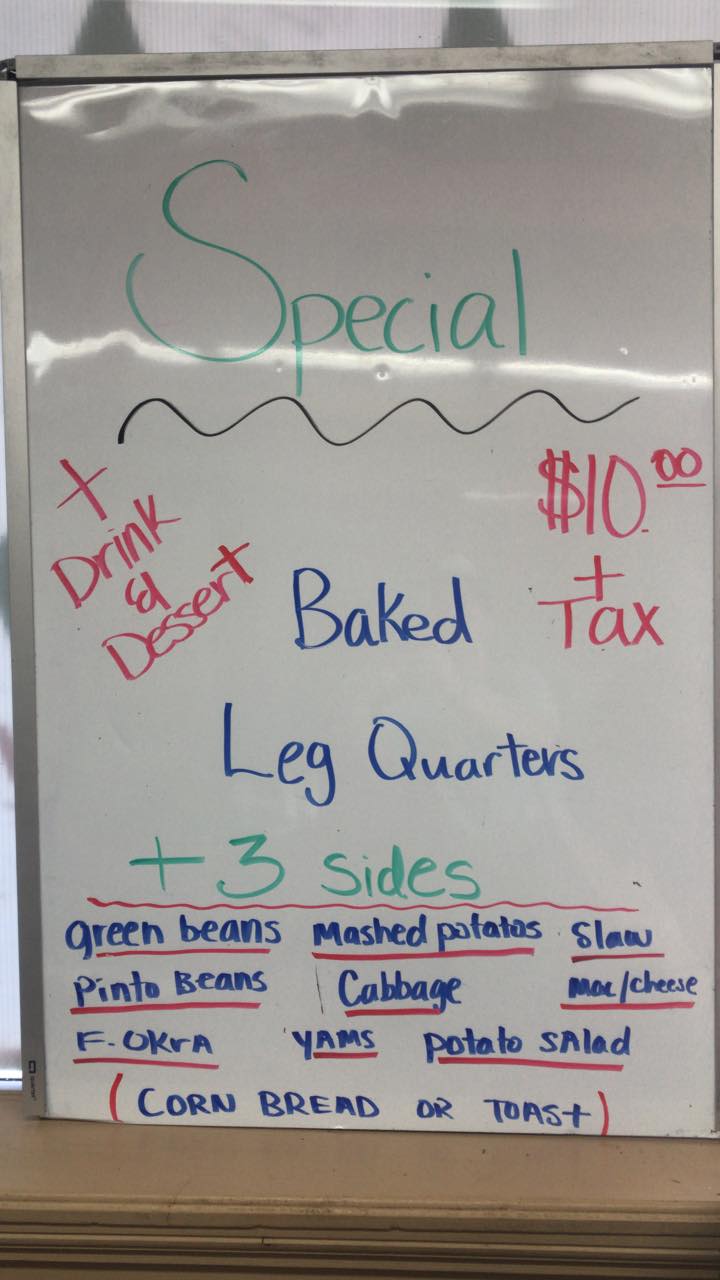 Special
+
Drink
&
Dessert
$10.00
+
Tax
Baked
Leg Quarters
+3 sides
green beans Mashed potatos Slaw
Pinto Beans Cabbage Mac/cheese
F-OKrA YAMS potato SAlad
(CORN BREAD OR TOASt)